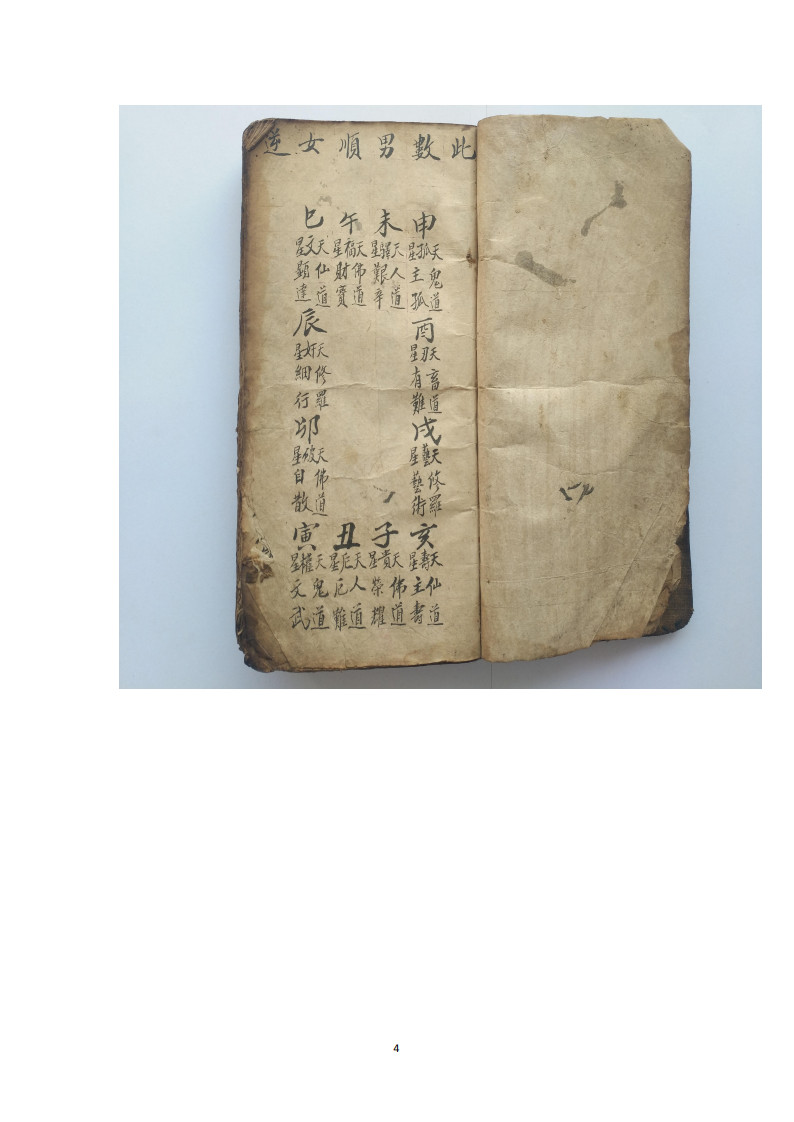 此數男順女逆
申
天孤星
鬼道
主孤
酉
天刃星
畜道
有難
戌
天藝星
修羅
藝術
亥
天壽星
仙道
主壽
未
天驛星
人道
艱辛
子
天貴星
佛道
榮耀
午
天福星
佛道
財寶
丑
天厄星
人道
厄難
巳
天文星
仙道
顯達
辰
天奸星
修羅
細行
卯
天破星
佛道
自散
寅
天權星
鬼道
文武
4